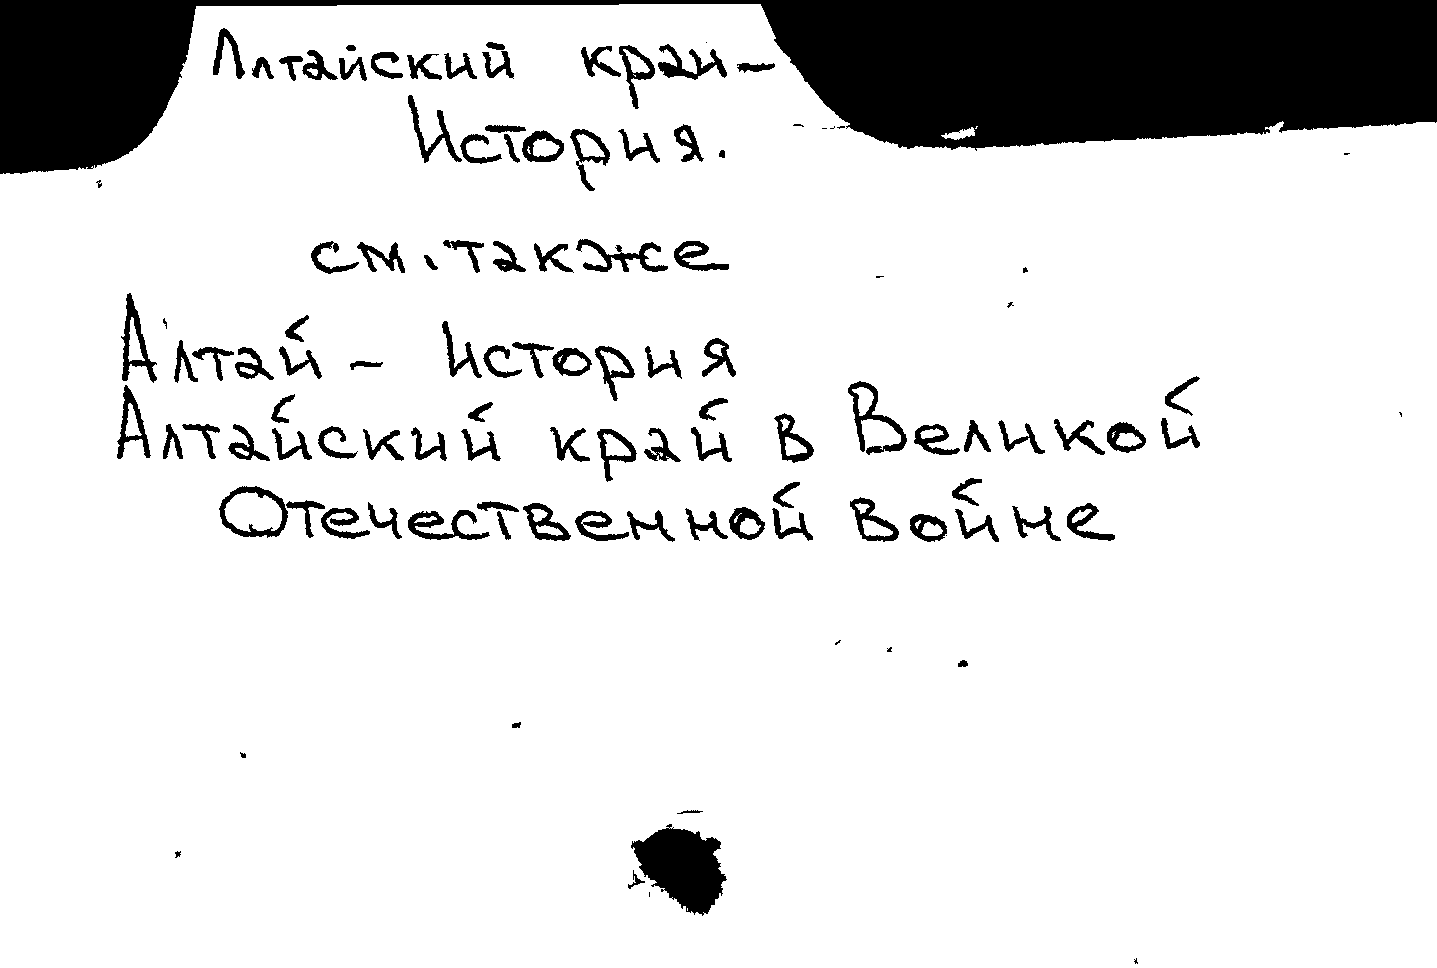 Алтайский край –
История.
см. также
Алтай – история
Алтайский край в Великой
Отечественной войне